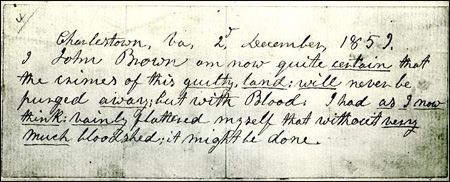 Charlestown, Va, 2d, December, 1859.
I John Brown am now quite certain that
the crimes of this guilty, land: will never be
purged away; but with Blood. I had as I now
think: vainly flattered myself that without very
much bloodshed; it might be done.